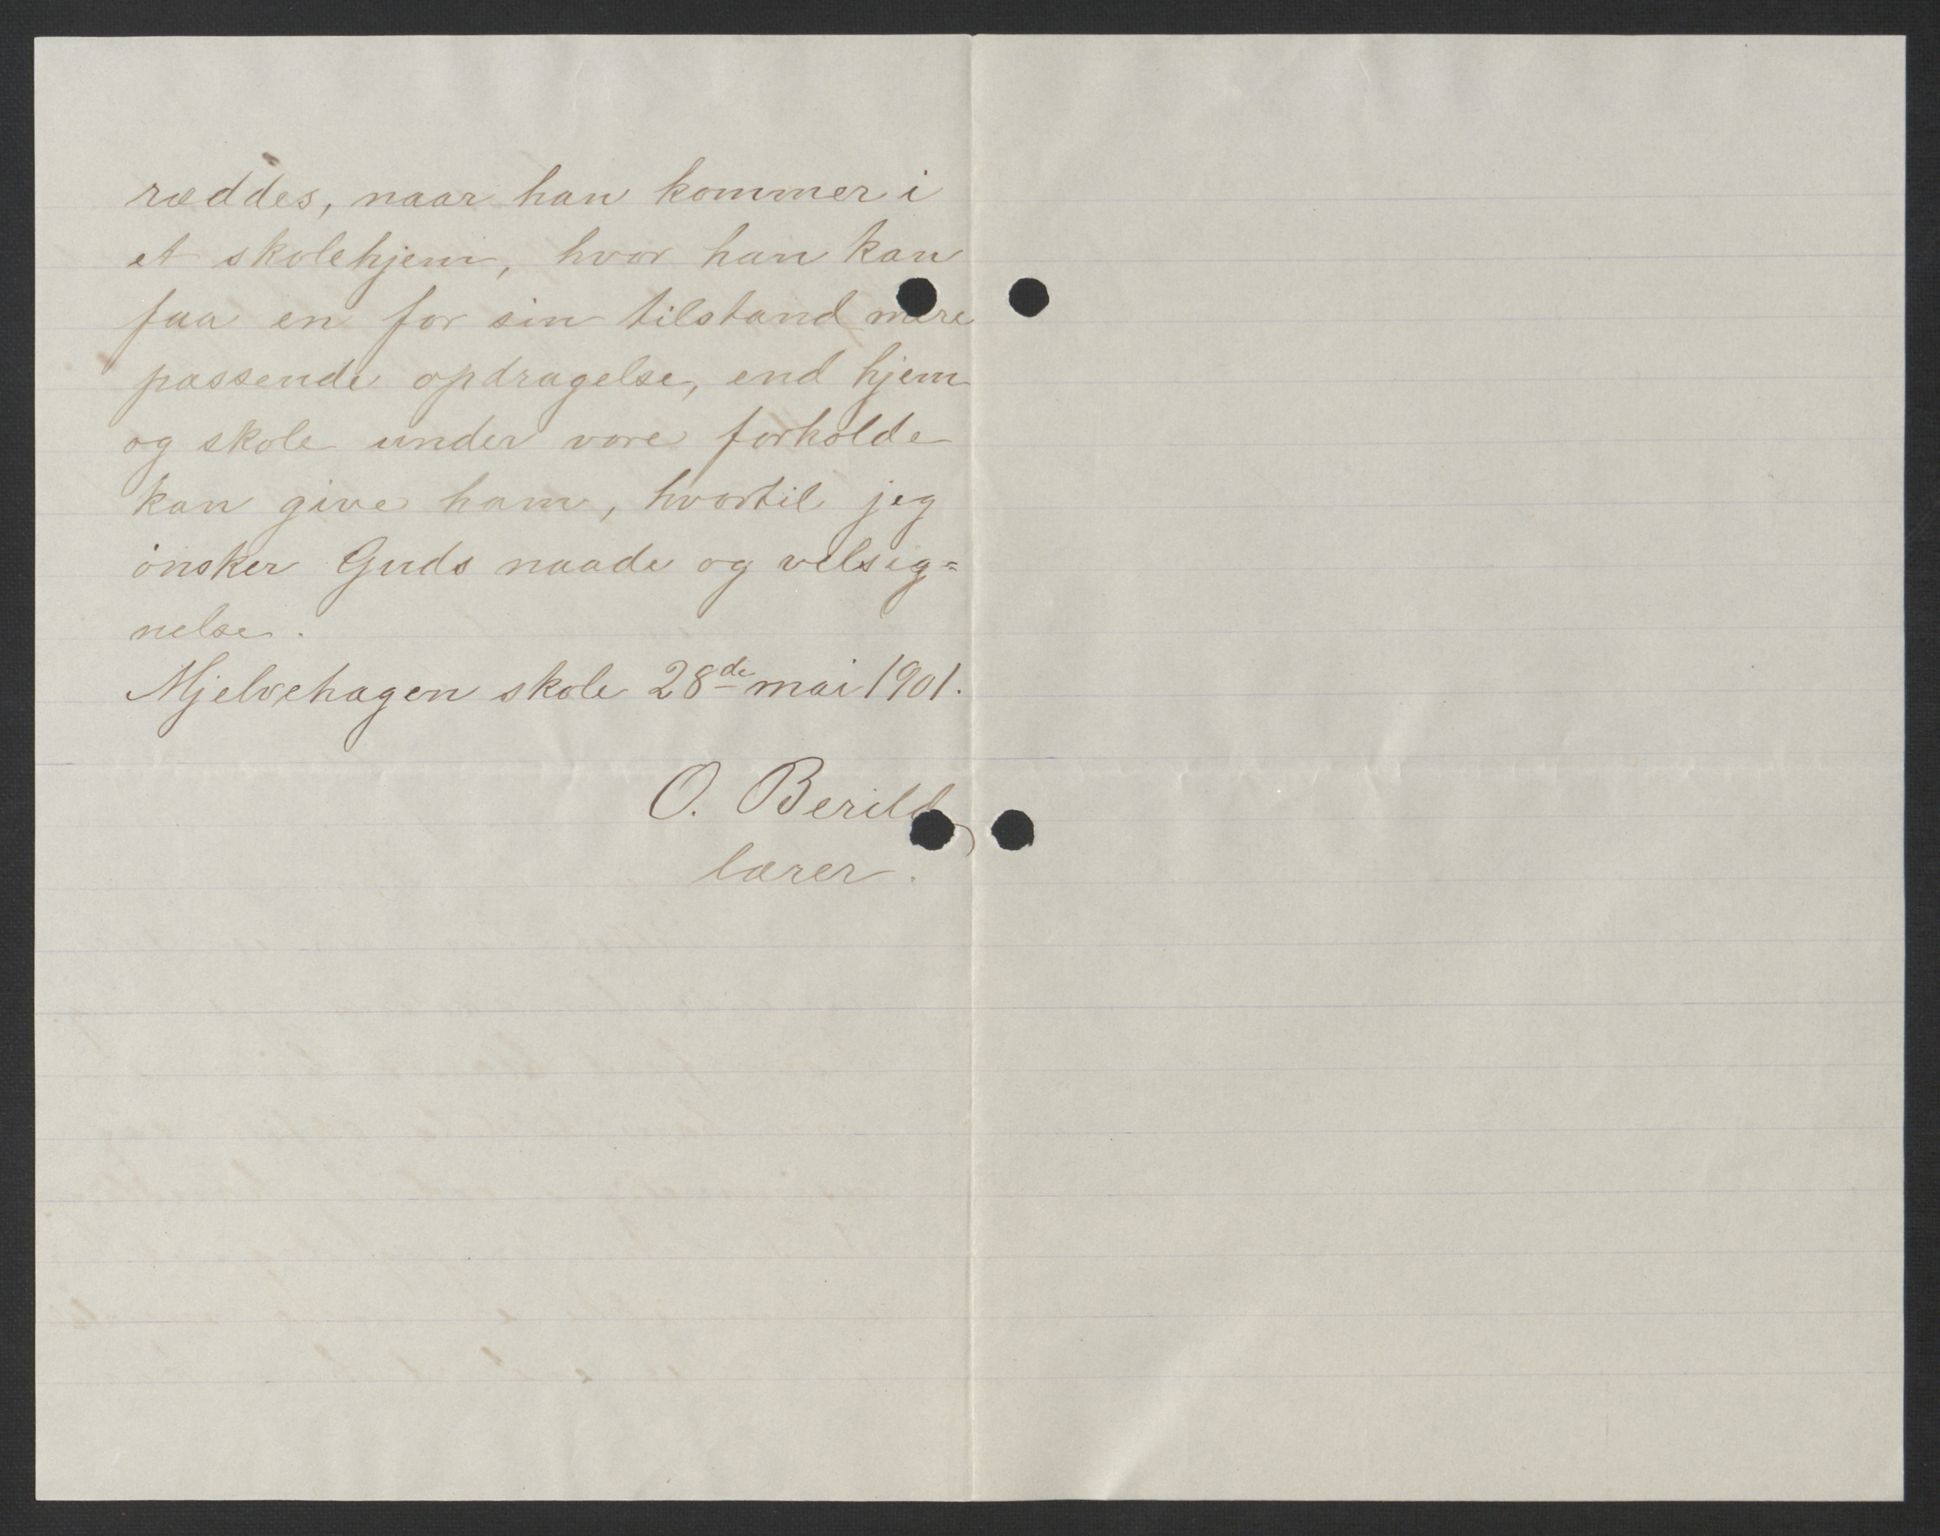 ræddes, naar han kommer i
et skolehjem, hvor han kan
faa en for sin tilstand mere
passende opdragelse, end hjem
og skole under vore forholde
kan give ham, hvortil jeg
ønsker Guds naade og velsig=
nelse.
Mjelvehagen skole 28de mai 1901.
O. Berild,
lærer.